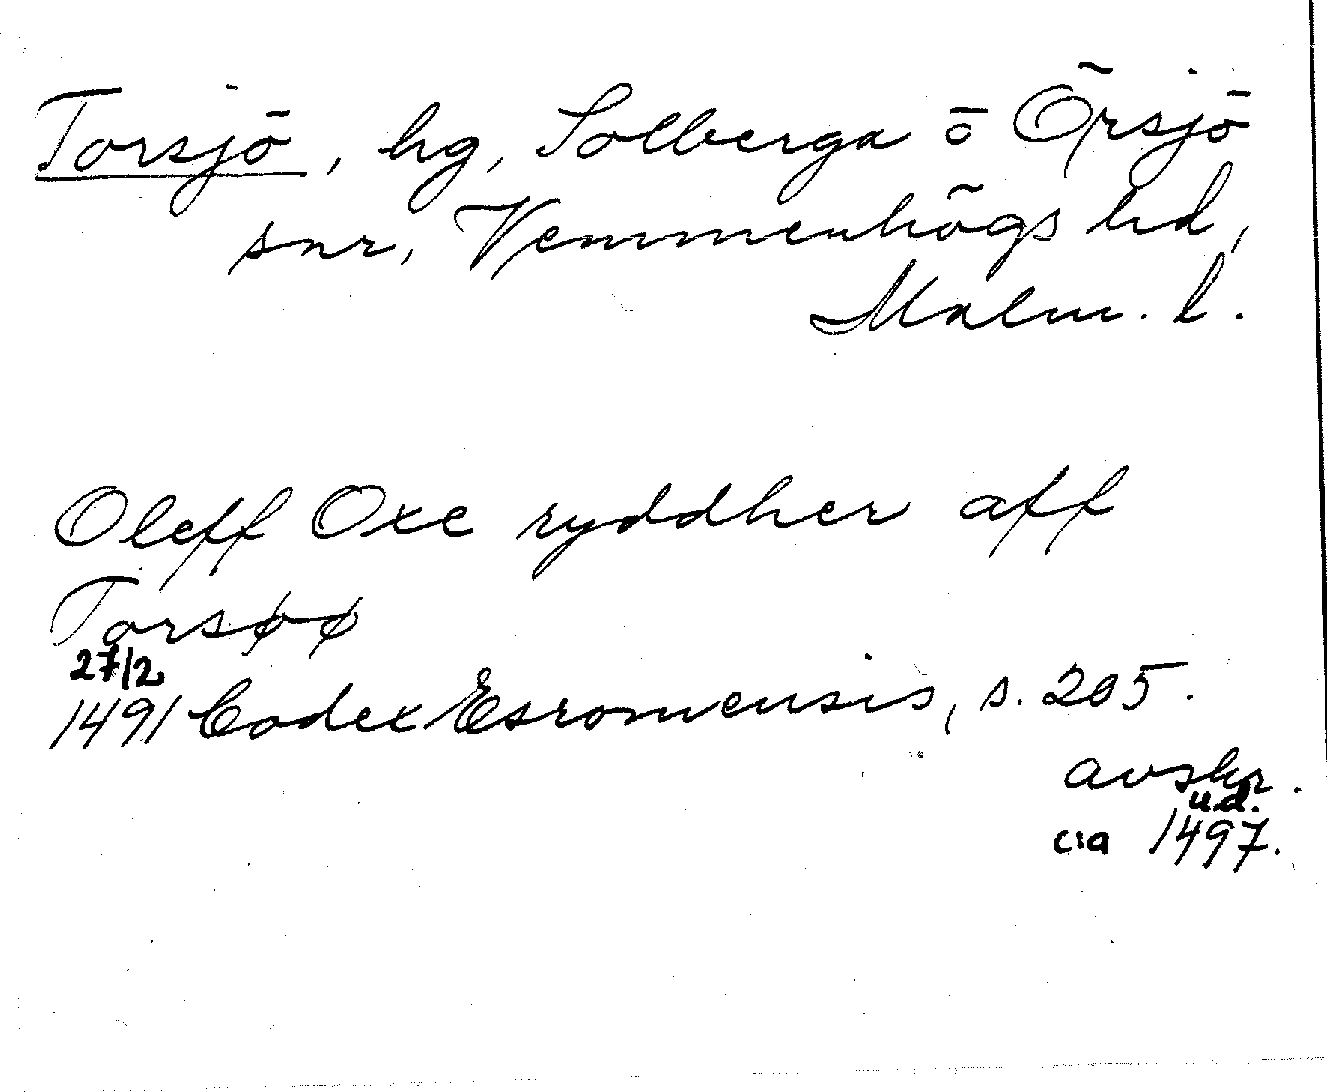 Torsjö, hg, Solberga o Örsjö
snr, Vemmenhögs hd,
Malm. l.
Oleff Oxe ryddher aff
Torsøø
27/2
1491 Codex Esromensis, s. 205.
avskr.
u.d.
c:a 1497.